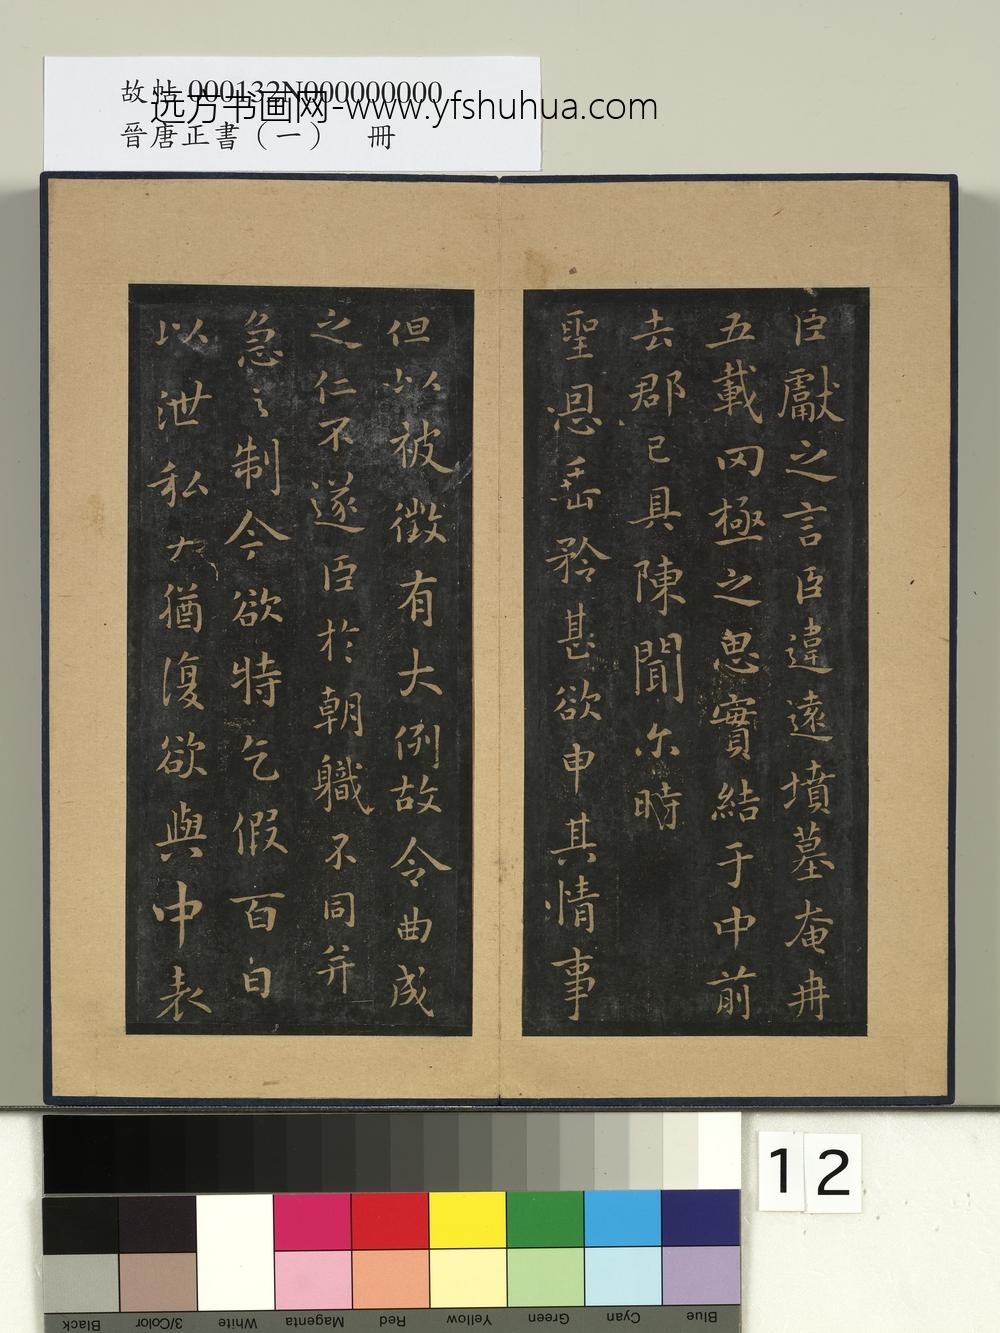 故帖 000132N000000000
远方书画网-www.yfshuhua.com
晉唐正書（一） 冊
臣獻之言臣違遠墳墓奄冉
五載罔極之思實結于中前
去郡已具陳聞尒時
聖恩垂矜甚欲申其情事
但以被徵有大例故令曲成
之仁不遂臣於朝職不同并
急之制今欲特乞假百日
以泄私
猶復欲與中表
12
Black
3/Color
White
Magenta
Red
Yellow
Green
Cyan
Blue